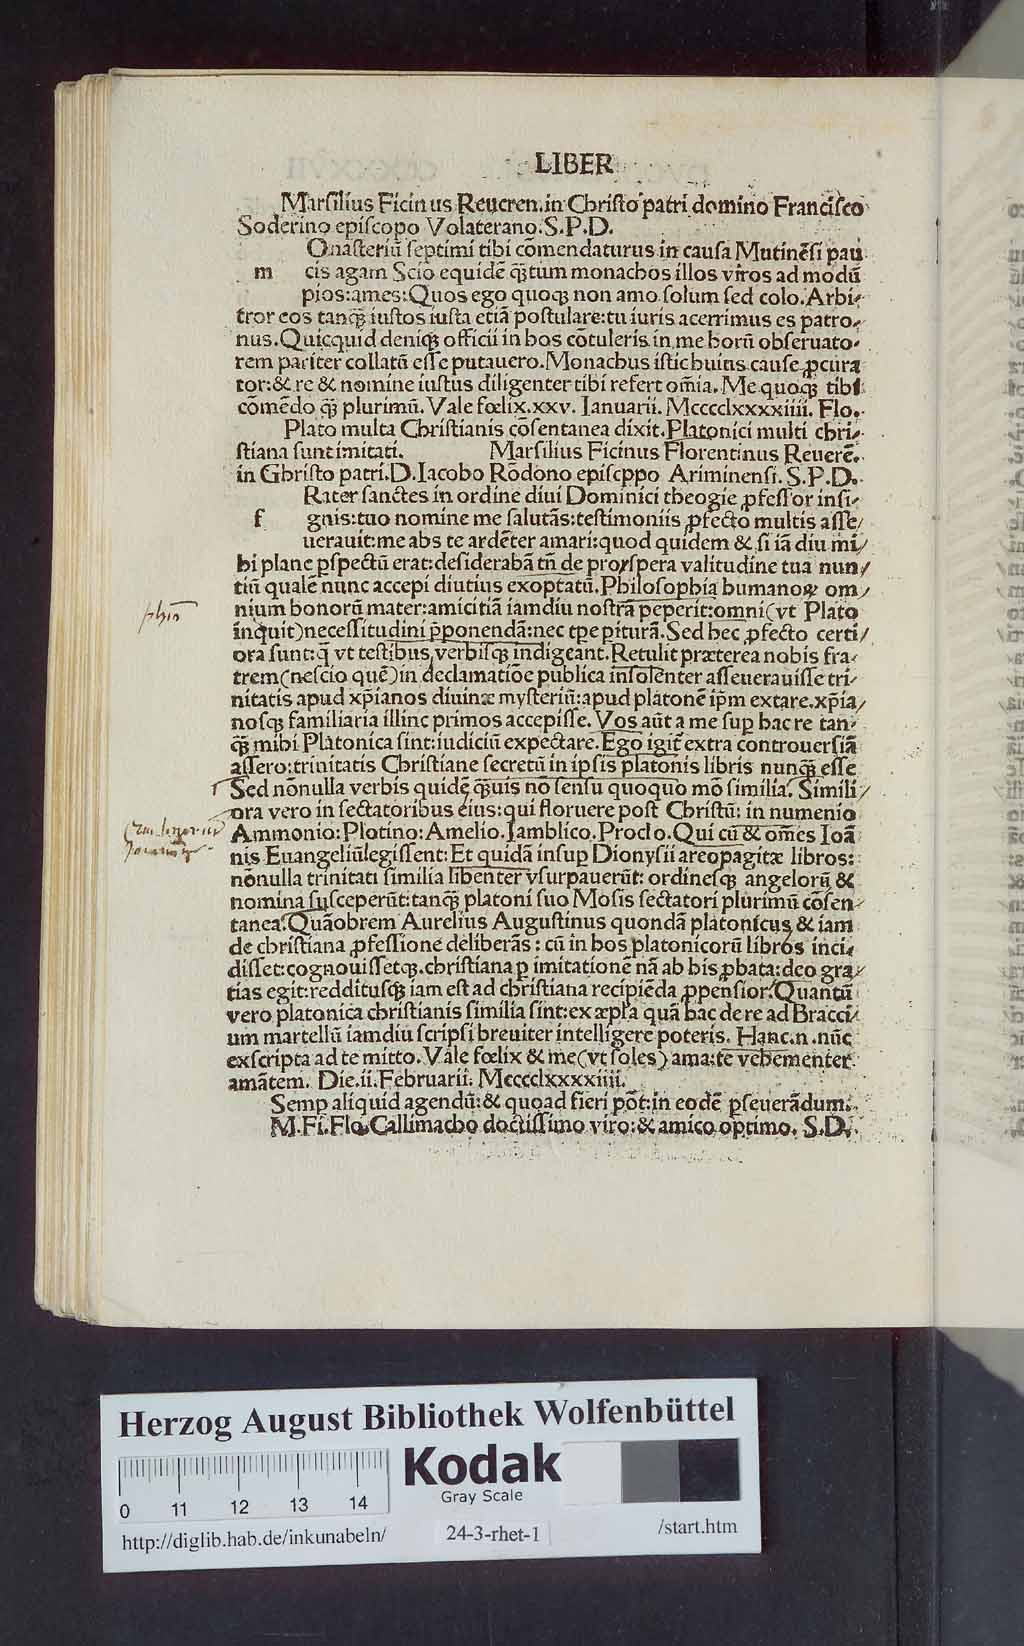 LIBER
Marſilius Ficinus Reueren.in Chriſto patri domino Franciſco
Soderino epiſcopo Volaterano.S.P.D.
Onaſteriū ſeptimi tibi cōmendaturus in cauſa Mutinēſi pau
m cis agam Scio equidē q̄ꝫtum monachos illos viros ad modū
pios:ames:Quos ego quoqꝫ non amo ſolum ſed colo.Arbi-
tror eos tanq̄ꝫ iuſtos iuſta etiā poſtulare:tu iuris acerrimus es patro-
nus.Quicquid deniqꝫ officii in hos cōtuleris in me horū obſeruato-
rem pariter collatū eſſe putauero.Monachus iſtic huius cauſe ꝓcura
tor:& re & nomine iuſtus diligenter tibi refert om̄ia.Me quoqꝫ tibi
cōmēdo q̄ꝫ plurimū.Vale fœlix.xxv. Ianuarii. Mcccclxxxxiiii. Flo.
Plato multa Chriſtianis cōſentanea dixit.Platonici multi chri-
ſtiana ſunt imitati. Marſilius Ficinus Florentinus Reuerē.
in Ghriſto patri.D.Iacobo Rōdono epiſcppo Ariminenſi.S.P.D.
Rater ſanctes in ordine diui Dominici theogie ꝓfeſſor inſi-
f gnis:tuo nomine me ſalutās:teſtimoniis ꝓfecto multis aſſe/
uerauit:me abs te ardēter amari:quod quidem & ſi iā diu mi/
hi plane ꝑſpectū erat:deſiderabā tn̄ de proſpera valitudine tua nun/
tiū qualē nunc accepi diutius exoptatū.Philoſophia humanoꝝ om/
phīa
nium bonorū mater:amicitiā iamdiu noſtrā peperit:omni(vt Plato
inquit)neceſſitudini p̄ponendā:nec tꝑe piturā.Sed hec ꝓfecto certi/
ora ſunt:q̄ vt teſtibus verbiſqꝫ indigeant.Retulit præterea nobis fra-
trem(neſcio quē)in declamatiōe publica inſolenter aſſeuerauiſſe tri-
nitatis apud xp̄ianos diuinæ myſteriū:apud platonē ip̄m extare.xp̄ia/
noſqꝫ familiaria illinc primos accepiſſe.Vos aūt a me ſuꝑ hac re tan-
q̄ꝫ mihi Platonica ſint:iudiciū expectare.Ego igit̄ extra controuerſiā
aſſero:trinitatis Chriſtiane ſecretū in ipſis platonis libris nunq̄ꝫ eſſe
Sed nōnulla verbis quidē q̄ꝫuis nō ſenſu quoquo mō ſimilia. Simili/
ora vero in ſectatoribus eius:qui floruere poſt Chriſtū: in numenio
Ammonio:Plotino:Amelio.Iamblico.Proclo.Qui cū & om̄es Ioā
nis Euangeliū legiſſent:Et quidā inſuꝑ Dionyſii areopagitæ libros:
nōnulla trinitati ſimilia libenter vſurpauerūt: ordineſqꝫ angelorū &
nomina ſuſceperūt:tanqꝫ platoni ſuo Moſis ſectatori plurimū cōſen-
tanea.Quāobrem Aurelius Auguſtinus quondā platonicus & iam
de chriſtiana ꝓfeſſione deliberās: cū in hos platonicorū libros inci-
diſſet:cognouiſſetqꝫ.chriſtiana ꝑ imitationē nā ab his ꝓbata:deo gra/
tias egit:redditusqꝫ iam eſt ad chriſtiana recipiēda ꝓpenſior.Quantū
vero platonica chriſtianis ſimilia ſint:ex æpl̄a quā hac de re ad Bracci/
um martellū iamdiu ſcripſi breuiter intelligere poteris. Hanc.n.nūc
exſcripta ad te mitto.Vale fœlix & me(vt ſoles)ama:te vehementer
amātem. Die.ii.Februarii: Mcccclxxxxiiii.
Semꝑ aliquid agendū:& quoad fieri pōt:in eodē ꝑſeuerādum.
M.Fi.Flo.Callimacho doctiſſimo viro:& amico optimo. S.D.
Herzog August Bibliothek Wolfenbüttel
Kodak
Gray Scale
0 11 12 13 14
http://diglib.hab.de/inkunabeln/ 24-3-rhet-1 /start.htm